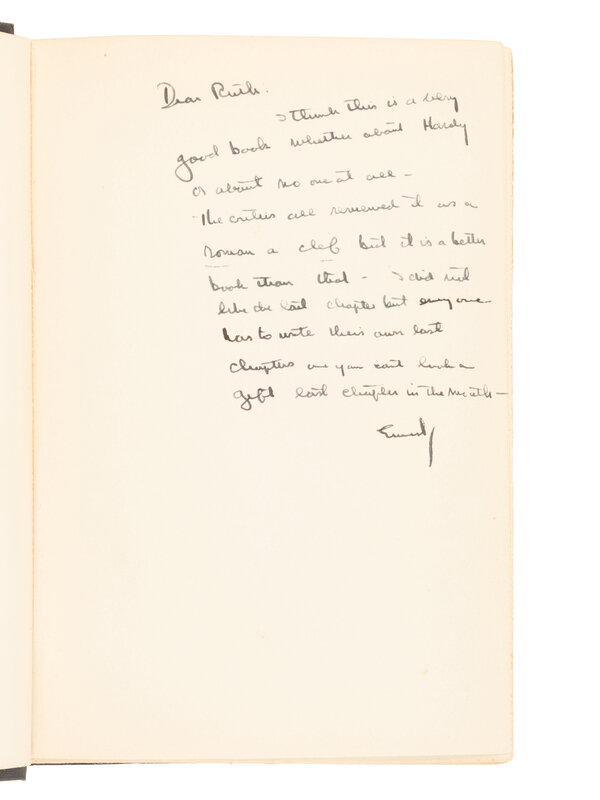 Dear Ruth.
I think this is a very
good book whether about Hardy
or about no one at all —
The critics all reviewed it as a
roman a clef but it is a better
book than that — I did not
like the last chapter but everyone
has to write their own last
chapters and you cant look a
gift last chapter in the mouth —
Ernest